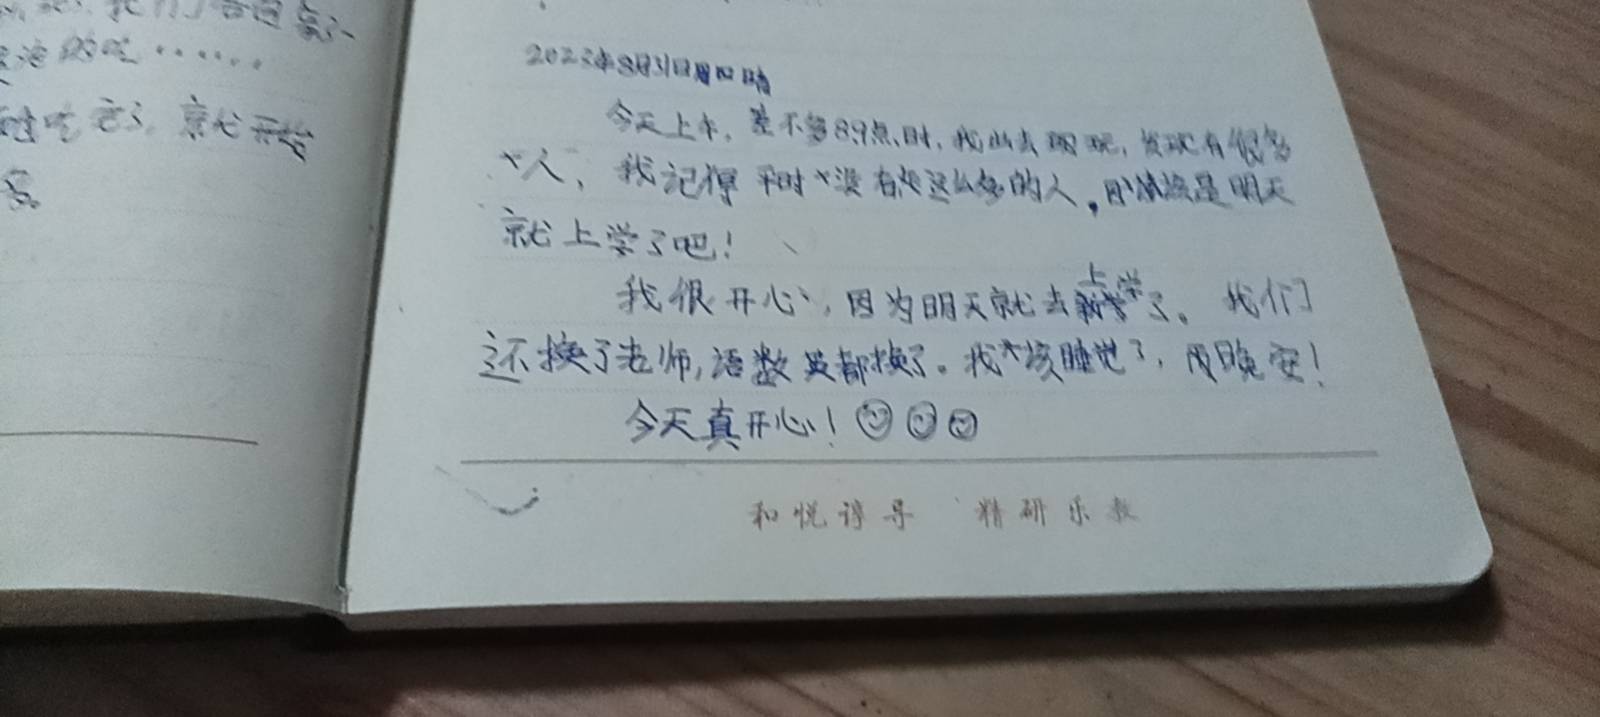 就开始
2023年8月31日周四晴
今天上午，差不多8.9点时，我出去玩，发现有很多
人，我记得平时没有这么多的人，应该是明天
就上学了吧！
我很开心，因为明天就去上学了。我们
还换了老师，语数英都换了。我该睡觉了，晚安！
今天真开心！
和悦谆导 精研乐教